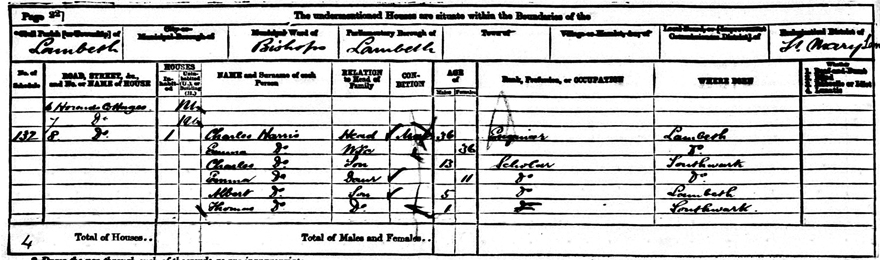 Page 22]
The undermentioned Houses are situate within the Boundaries of the
Civil Parish [or Township] of
Lambeth
City or Municipal Borough of
Municipal Ward of
Bishops
Parliamentary Borough of
Lambeth
Town of
Village or Hamlet, &c., of
Local Board, or [Improvement Commissioners District] of
Ecclesiastical District of
St Mary
No. of Schedule
ROAD, STREET, &c., and No. or NAME of HOUSE
HOUSES
NAME and Surname of each Person
RELATION to Head of Family
CONDITION
AGE of
Males
Females
Rank, Profession, or OCCUPATION
WHERE BORN
6 Cottages
7 Do
132 8 Do 1 Charles Harris Head Mar 36 Engineer Lambeth
Emma Do Wife 36 Do
Charles Do Son 13 Scholar Southwark
Emma Do Daur 11 Do Do
Albert Do Son 5 Do Lambeth
Thomas Do Do 1 Southwark
4 Total of Houses.. Total of Males and Females..